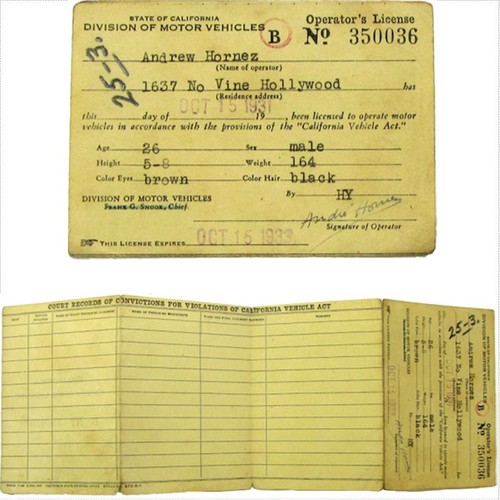 STATE OF CALIFORNIA
DIVISION OF MOTOR VEHICLES
Operator's License
B Nº 350036
25-3.
Andrew Hornez
(Name of operator)
1637 No Vine Hollywood has
(Residence address)
OCT 15 1931
this day of 19 , been licensed to operate motor
vehicles in accordance with the provisions of the "California Vehicle Act."
Age 26 Sex male
Height 5-8 Weight 164
Color Eyes brown Color Hair black
DIVISION OF MOTOR VEHICLES By HY
FRANK G. SNOOK, Chief.
André Hornez
Signature of Operator
THIS LICENSE EXPIRES OCT 15 1933
COURT RECORDS OF CONVICTIONS FOR VIOLATIONS OF CALIFORNIA VEHICLE ACT
DIVISION OF MOTOR VEHICLES
Operator's License
B Nº 350036
25-3.
Andrew Hornez
1637 No Vine Hollywood
26 male
5-8 164
brown black
HY